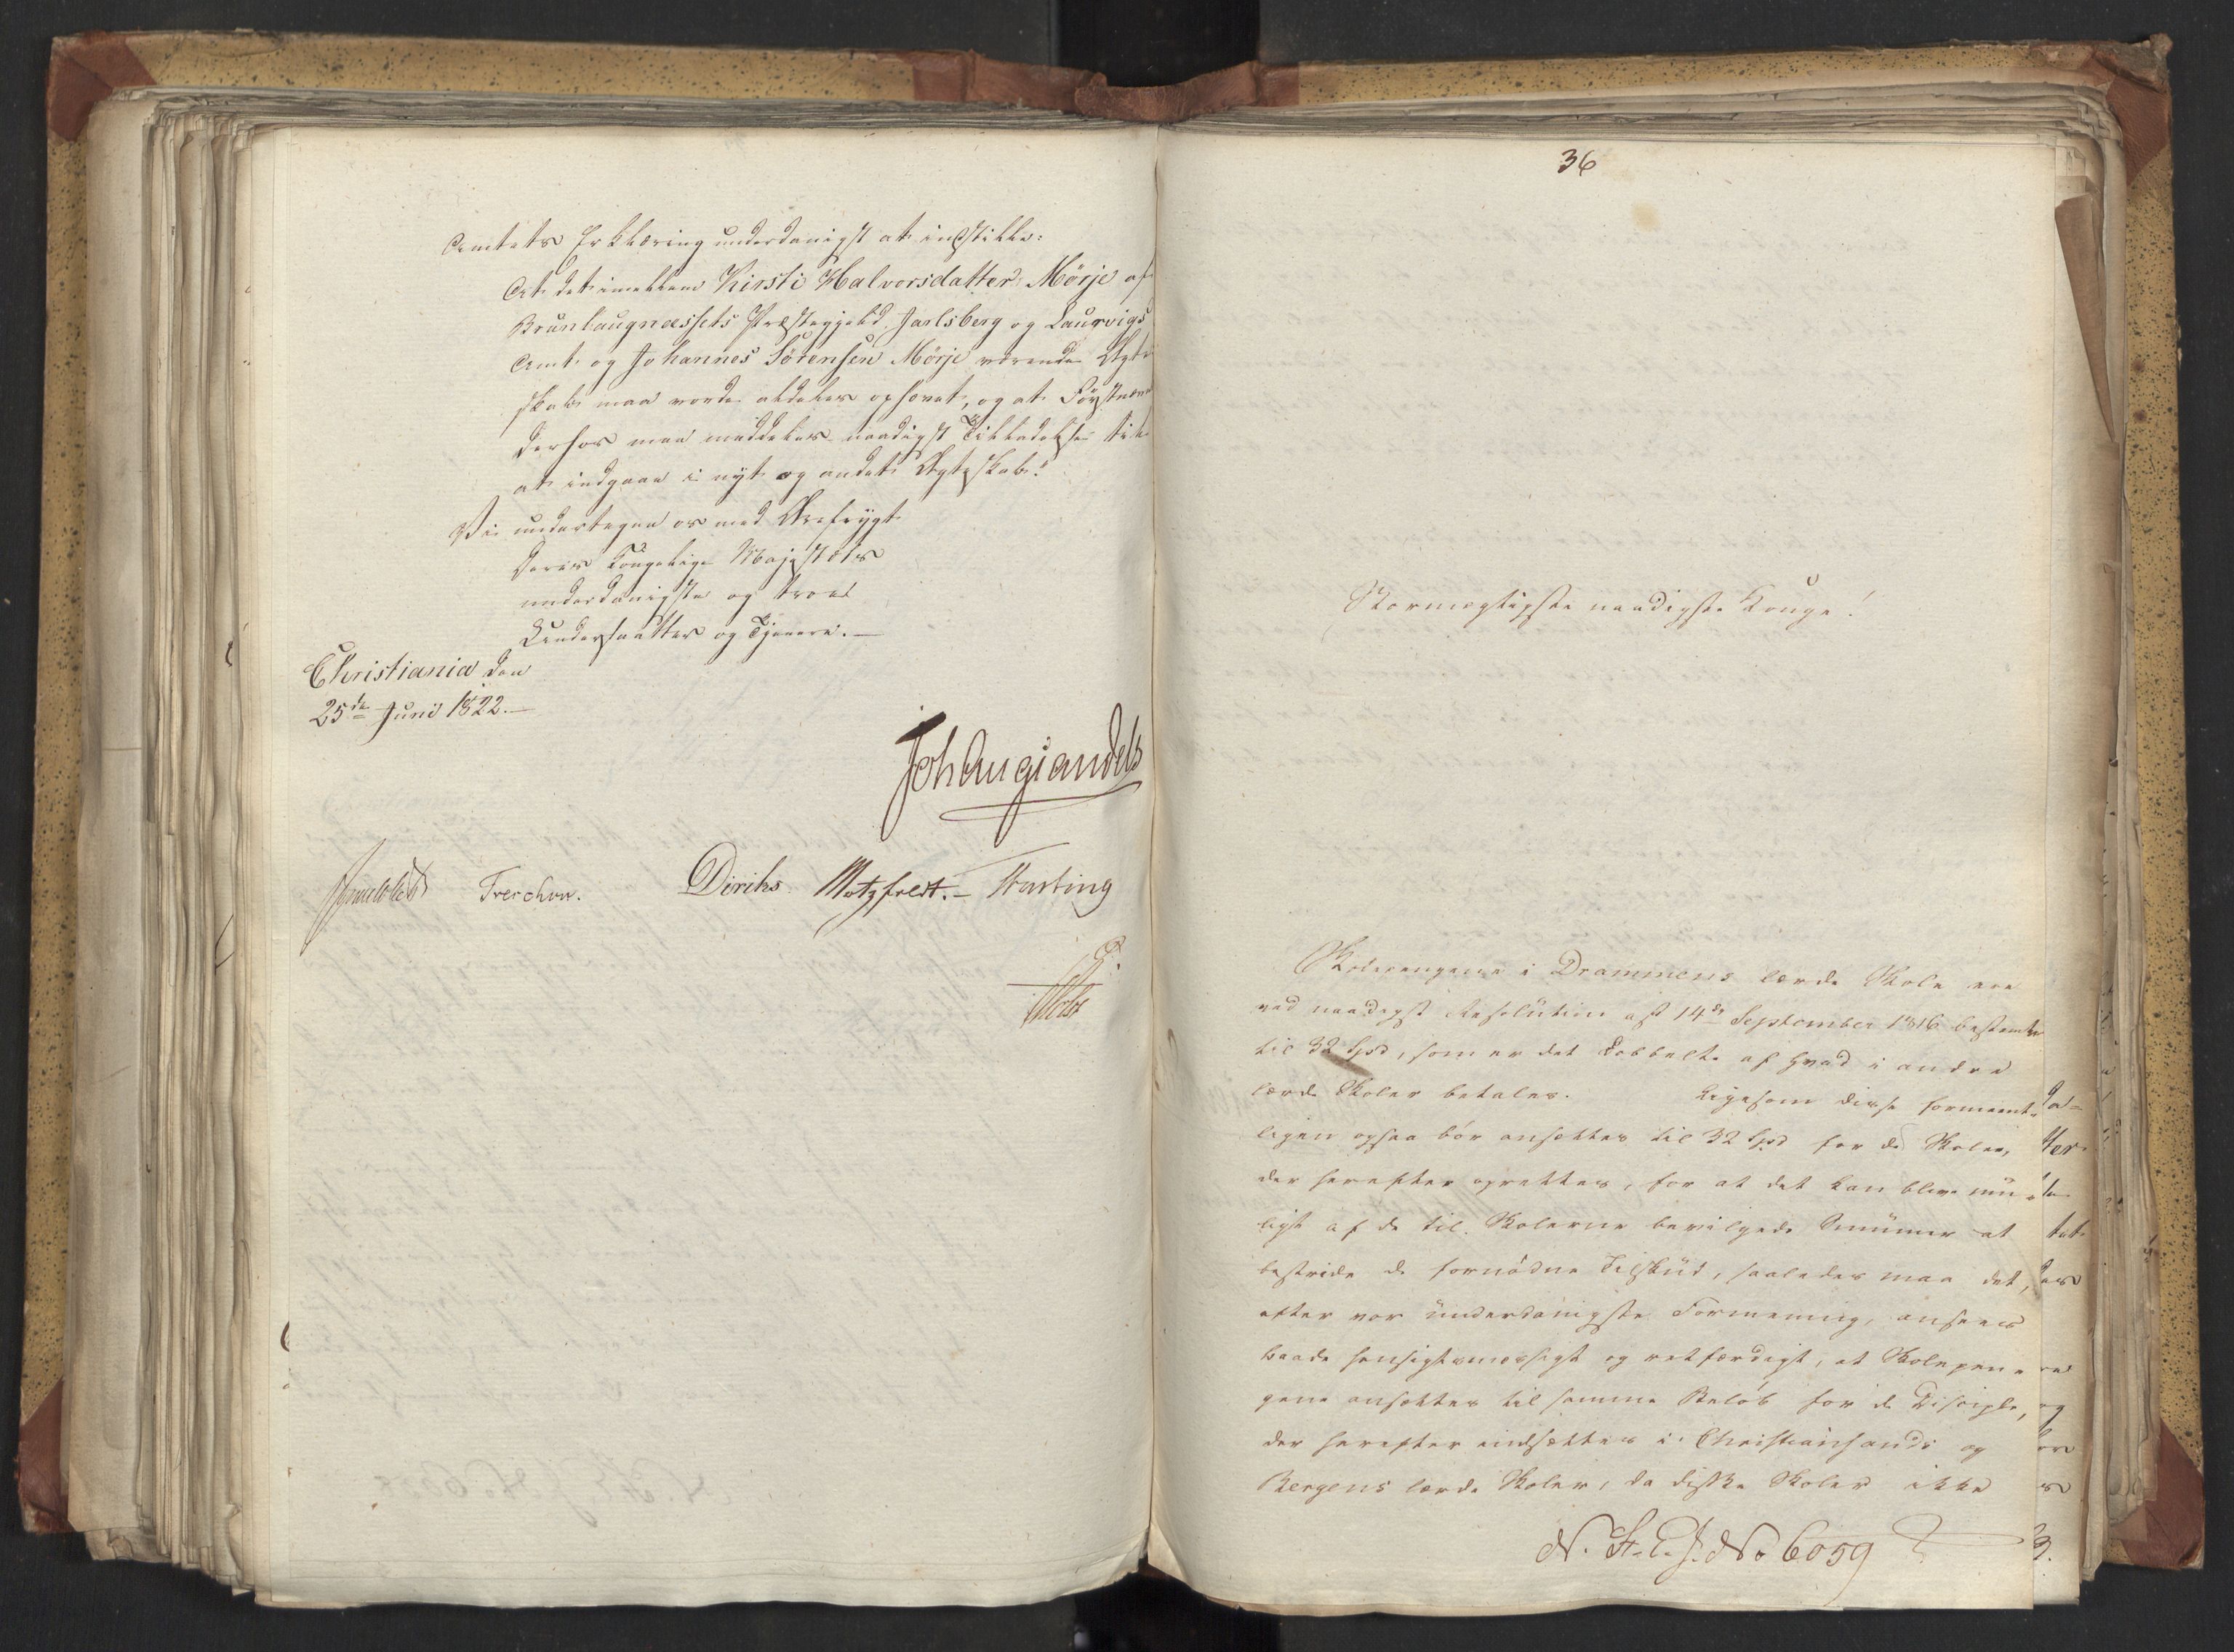 Amtets Erklæring underdanigst at indstille:
At det imellem Kirsti Halvorsdatter Mörje af
Brunlaugnæssets Præstegjeld Jarlsberg og Laurvigs
Amt og Johannes Sörensen Mörje værende Ægte
skab maa vorde aldeles ophævet, og at Förstnævnte
derhos maa meddeles naadigst Tilladelse til
at indgaae i nyt og andet Ægteskab.
Vi undertegne os med Ærefrygt
Deres Kongelige Majestæts
underdanigste og troe
Undersaatter og Tjenere.
Christiania den
25de Juni 1822.
Joh Aug Sandels
Sommerhielm Treschow. Diriks. Motzfeldt. Fasting
36
Stormægtigste naadigste Konge!
Skolepengene i Drammens lærde Skole ere
ved naadigst Resolution af 14de September 1816 bestemte
til 32 Spd, som er det dobbelte af hvad i andre
lærde Skoler betales. Ligesom disse formeent-
ligen ogsaa bör ansættes til 32 Spd for de Skoler,
der herefter oprettes, for at det kan blive mu-
ligt af de til Skolerne bevilgede Summer at
bestride de fornödne Tilskud, saaledes maa det,
efter vor underdanigste Formening, ansees
baade hensigtsmæssigt og retfærdigt, at Skolepen-
gene ansættes til samme Beløb for de Disciple,
der herefter indsættes i Christiansands og
Bergens lærde Skoler, da disse Skoler ikke
N. St. C. J. No 6059